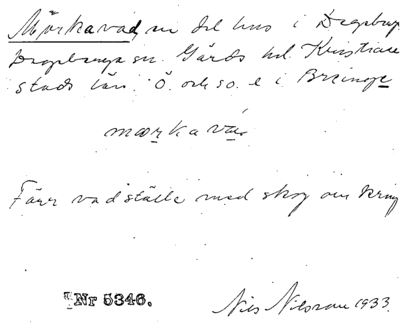 Mörkavad, en del hus i Degeberga
Degeberga sn. Gärds hd. Kristian-
stads län. Ö. och so. e i Brinope
mœrkavá
Förr vadställe med skog omkring
Nr 5346.
Nils Nilsson 1933.